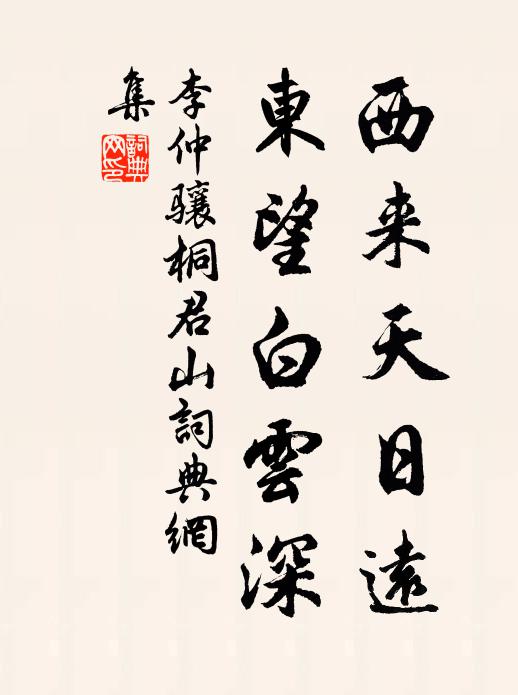 西来天日遠
東望白雲深
李仲骧桐君山詞典網
集
詞典
网印